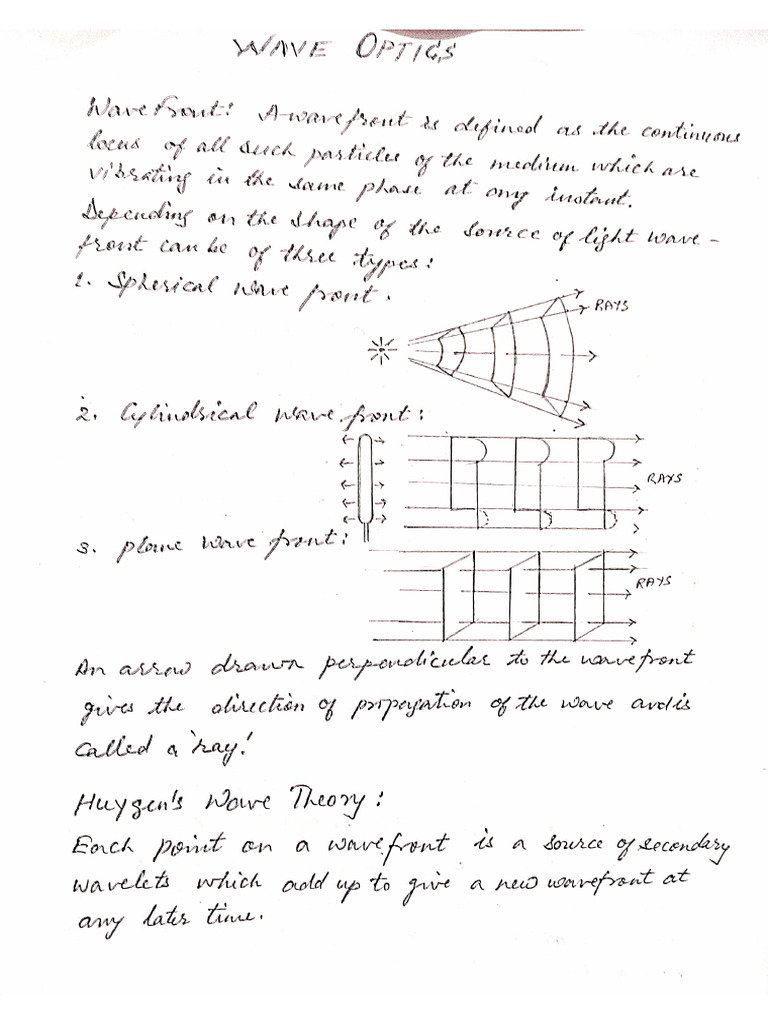 WAVE OPTICS
Wavefront: A wavefront is defined as the continuous
locus of all such particles of the medium which are
vibrating in the same phase at any instant.
Depending on the shape of the source of light wave-
front can be of three types:
1. Spherical wave front.
RAYS
2. Cylindrical wave front:
RAYS
3. plane wave front:
RAYS
An arrow drawn perpendicular to the wavefront
gives the direction of propogation of the wave and is
called a 'ray'.
Huygen's Wave Theory:
Each point on a wavefront is a source of secondary
wavelets which add up to give a new wavefront at
any later time.